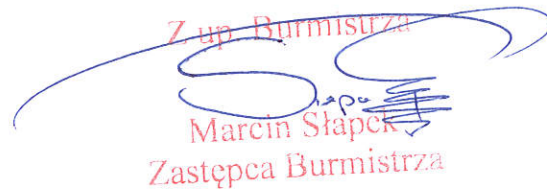 Z up. Burmistrza
Marcin Słapek
Zastępca Burmistrza